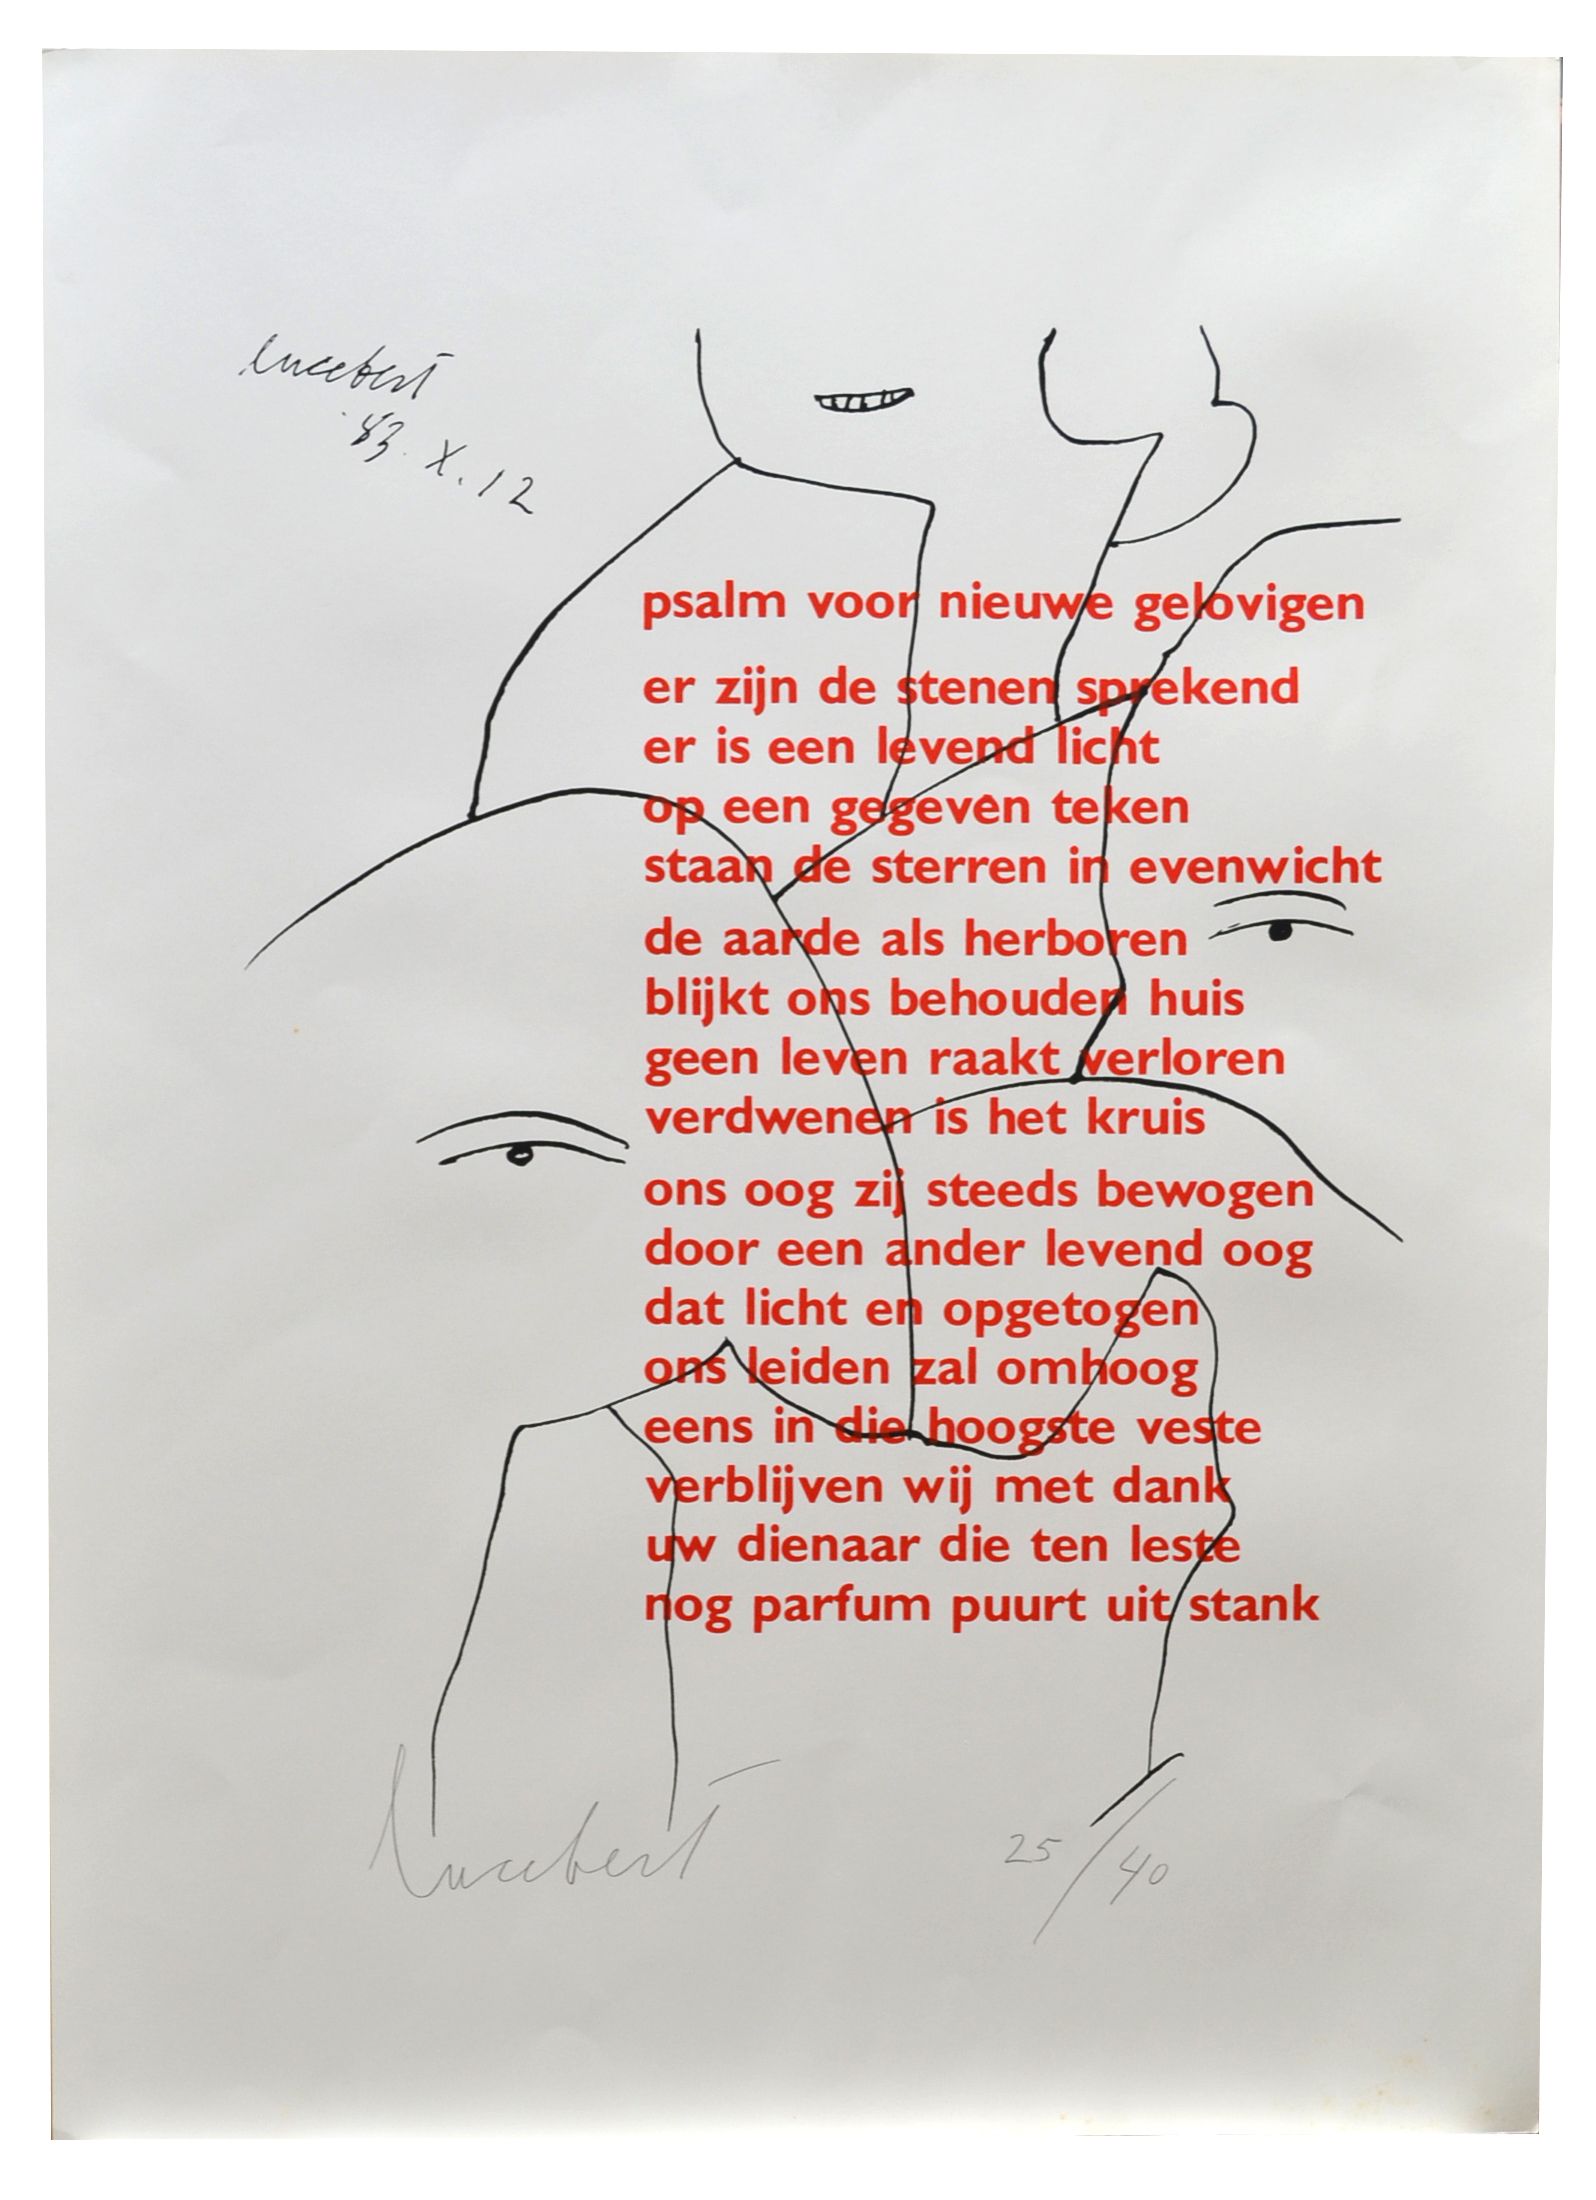 lucebert
'83. X. 12
psalm voor nieuwe gelovigen
er zijn de stenen sprekend
er is een levend licht
op een gegeven teken
staan de sterren in evenwicht
de aarde als herboren
blijkt ons behouden huis
geen leven raakt verloren
verdwenen is het kruis
ons oog zij steeds bewogen
door een ander levend oog
dat licht en opgetogen
ons leiden zal omhoog
eens in die hoogste veste
verblijven wij met dank
uw dienaar die ten leste
nog parfum puurt uit stank
lucebert
25/40